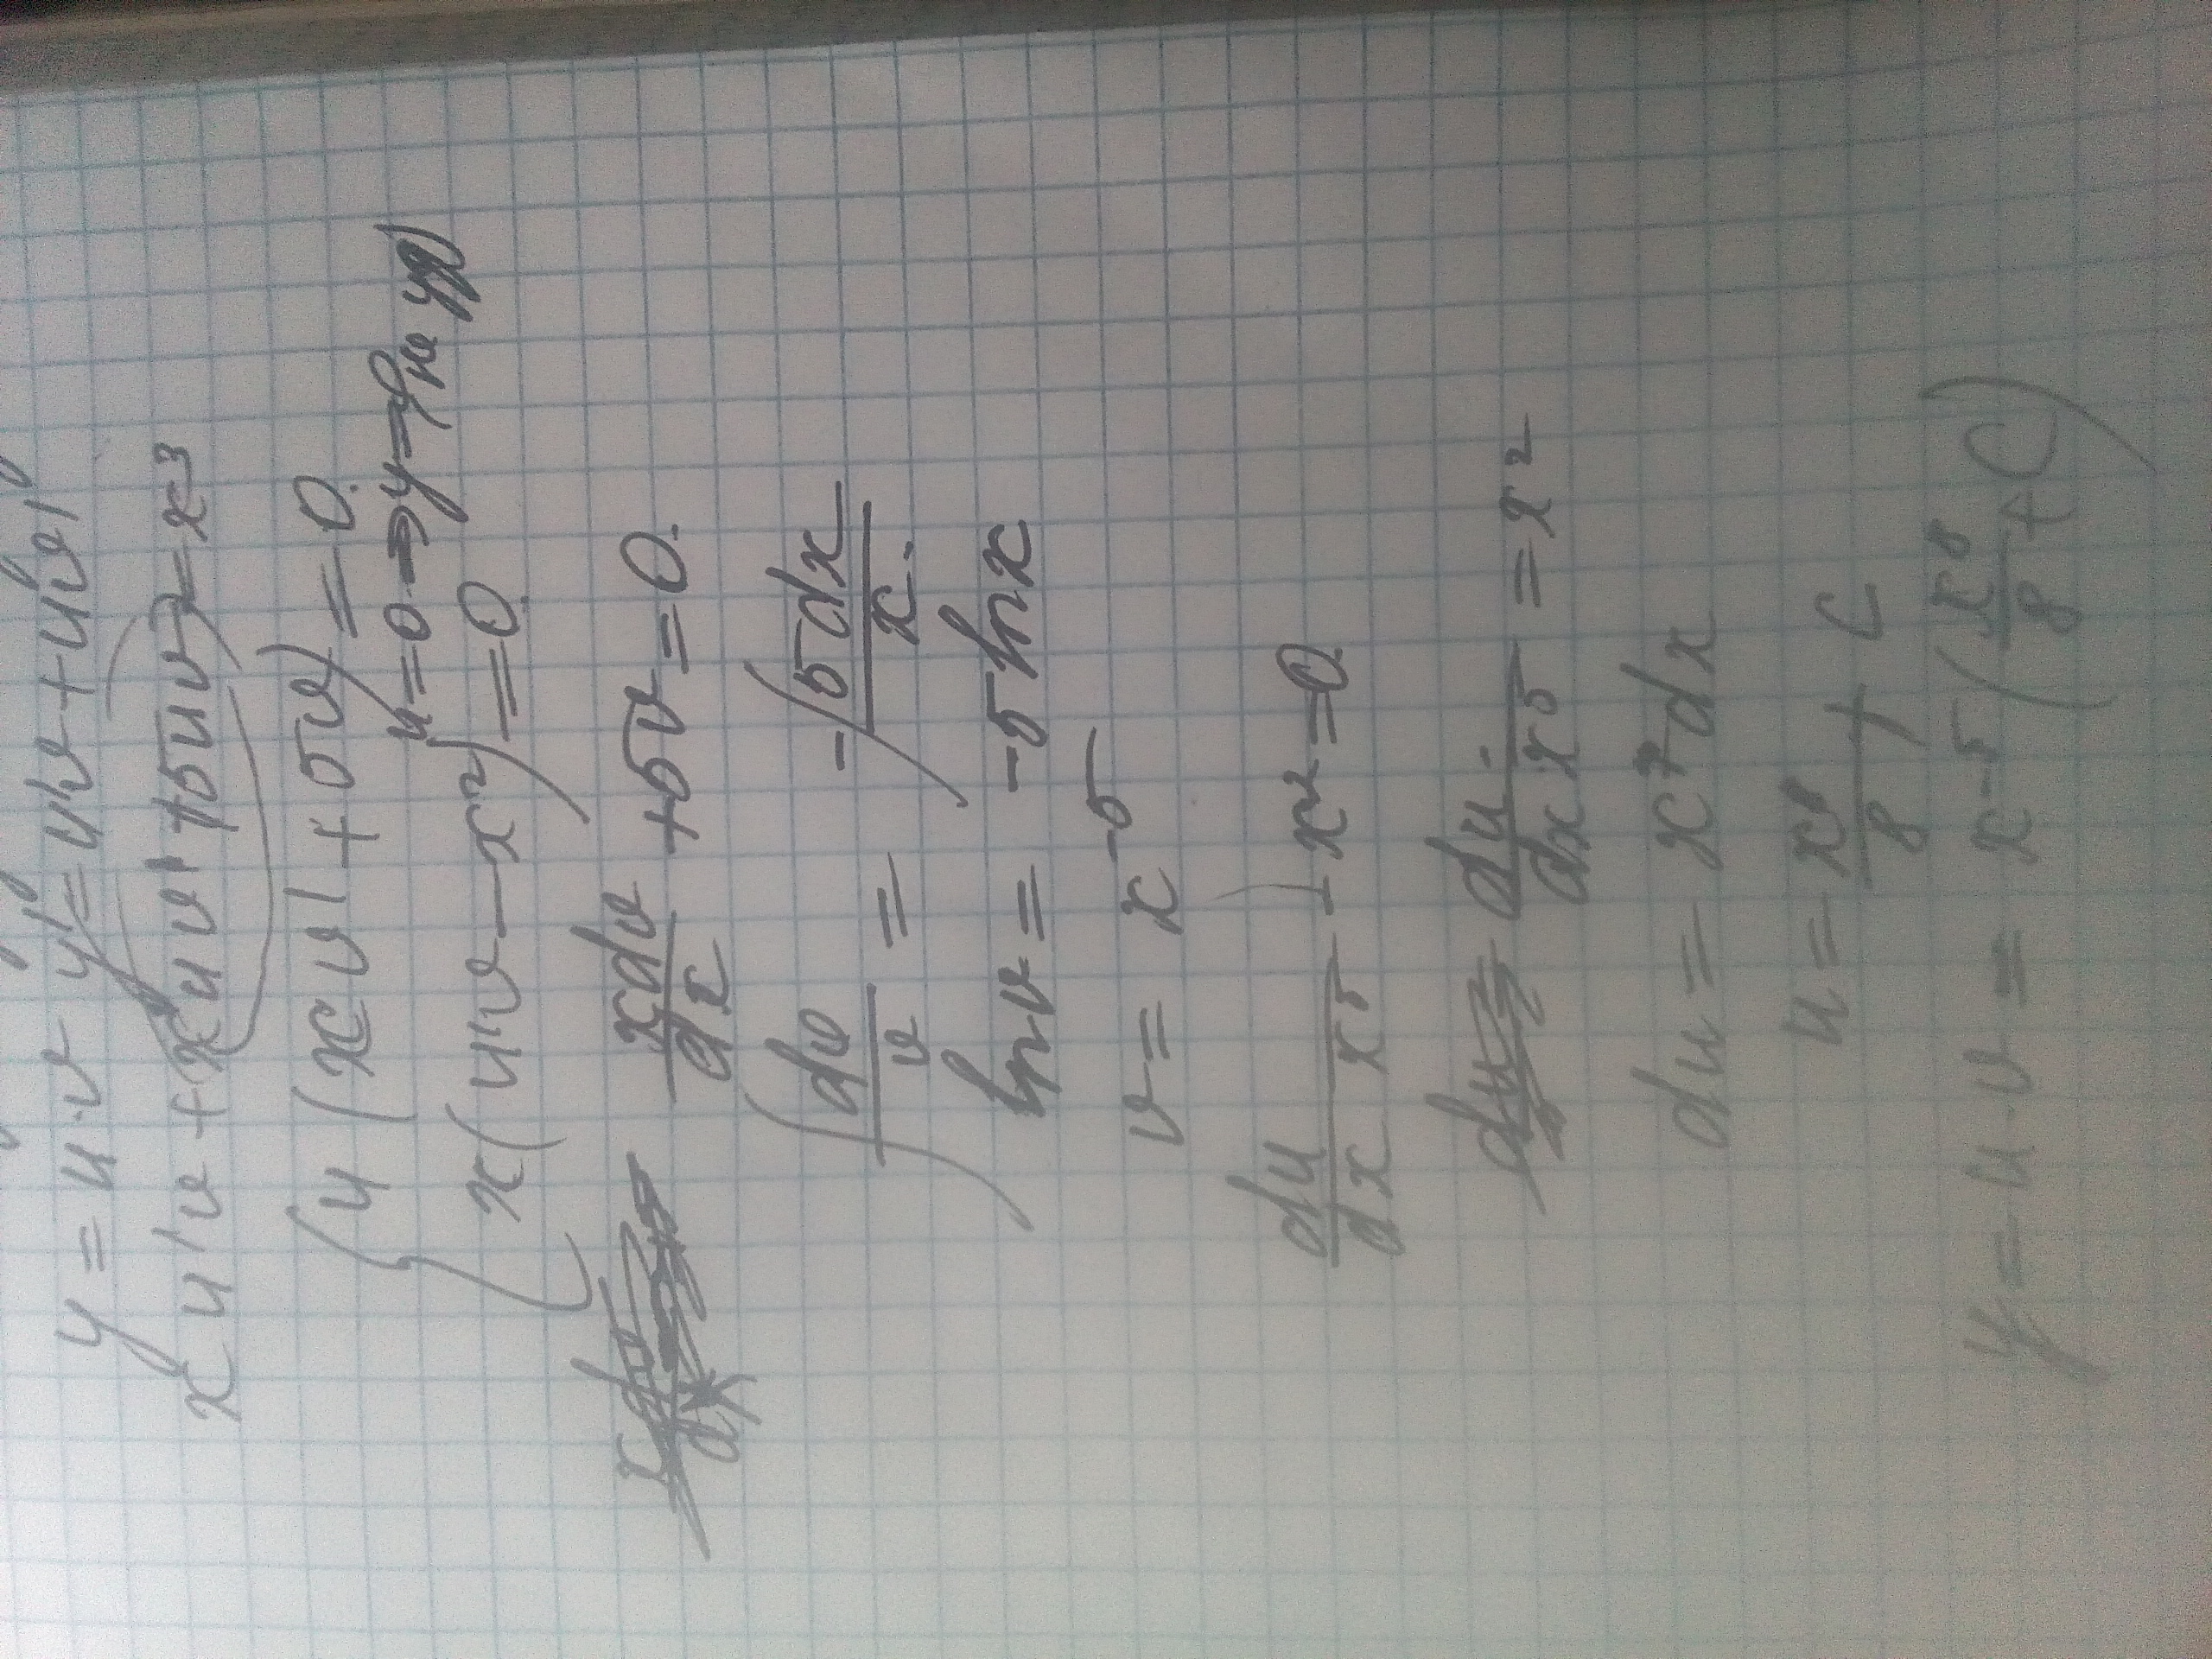 y = u·v y' = u'v + uv'
xu'v + xuv' + 5uv = x³
{ u(xv' + 5v) = 0.
u=0 ⇒ y=
x(u'v - x²) = 0.
xdv/dx + 5v = 0.
∫ dv/v = -∫ 5dx/x.
ln v = -5 ln x
v = x⁻⁵
du/dx x⁵ - x² = 0
du/dx·x⁵ = x²
du = x⁷dx
u = x⁸/8 + C
y = u·v = x⁻⁵(x⁸/8 + C)